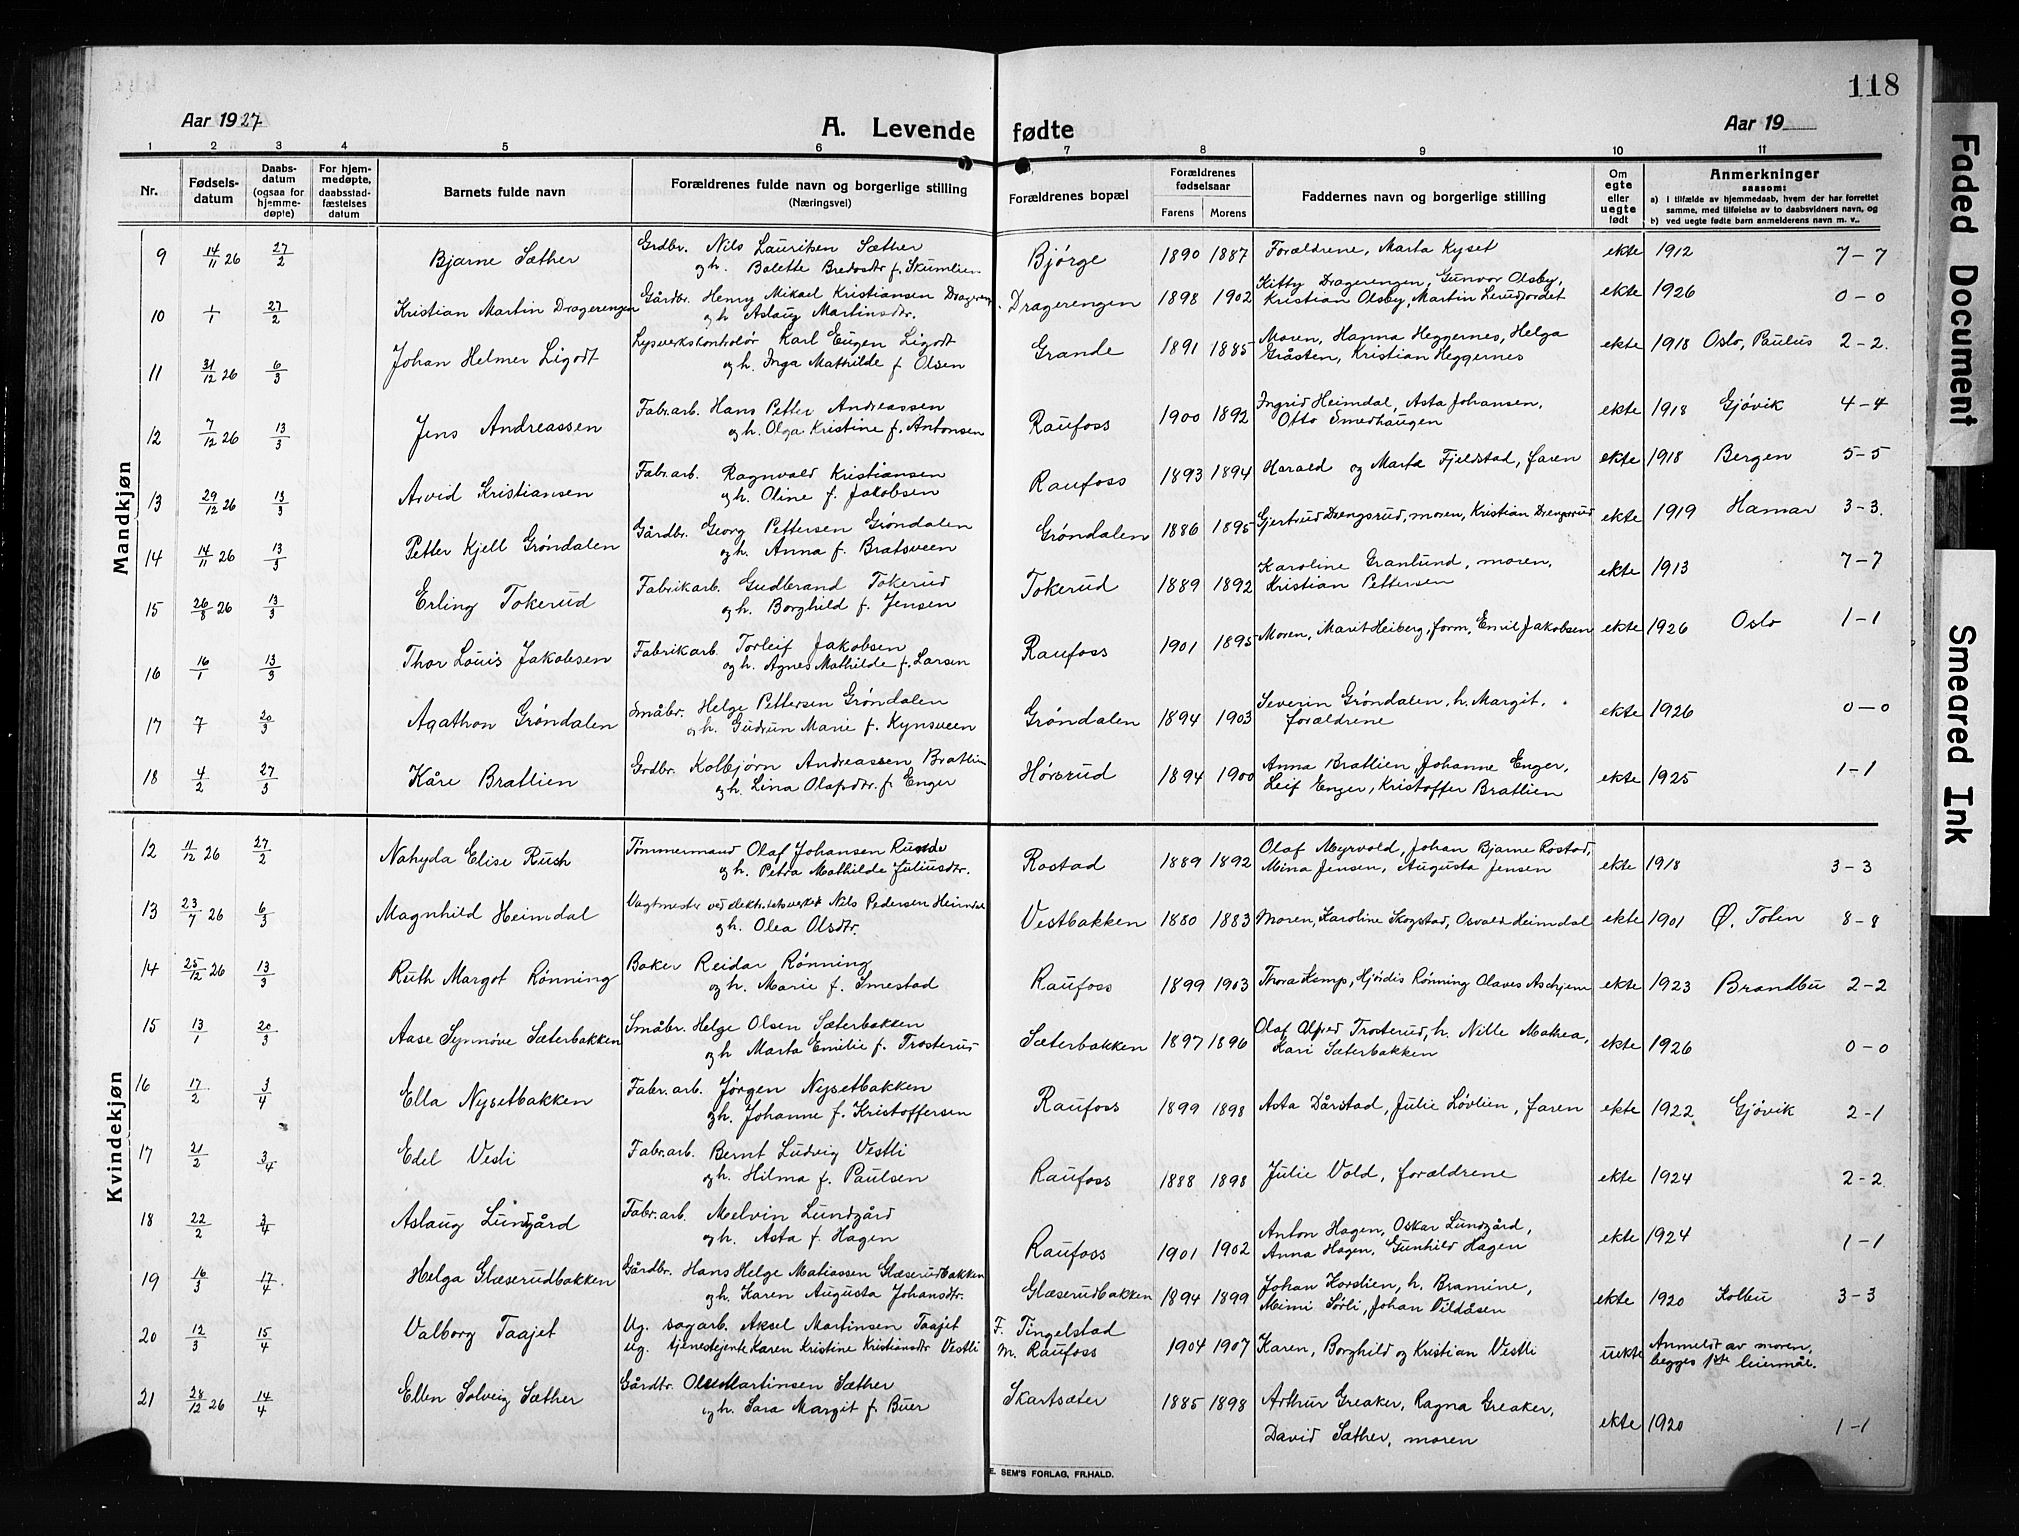 118
Aar 1927
A. Levende fødte
Aar 19
1 2 3 4 5 6 7 8 9 10 11
Nr.
Fødsels-
datum
Daabs-
datum
(ogsaa for
hjemme-
døpte)
For hjem-
medøpte,
daabsstad-
fæstelses
datum
Barnets fulde navn
Forældrenes fulde navn og borgerlige stilling
(Næringsvei)
Forældrenes bopæl
Forældrenes
fødselsaar
Farens Morens
Faddernes navn og borgerlige stilling
Om
egte
eller
uegte
født
Anmerkninger
saasom:
a) I tilfælde av hjemmedaab, hvem der har forrettet
samme, med tilføielse av to daabsvidners navn, og
b) ved uegte fødte barn anmelderens navn m. v..
Mandkjøn
9 14/11 26 27/2 Bjarne Sæther Grdbr. Nils Lauritsen Sæther Bjørge 1890 1887 Forældrene, Marta Kyset ekte 1912 7-7
og h. Bolette Bredesdtr f. Skumlien
10 1/1 27/2 Kristian Martin Dragerengen Gårdbr. Henry Mikael Kristiansen Dragereng Dragerengen 1898 1902 Kitty Dragerengen, Gunvor Olsby, ekte 1926 0-0
og h. Aslaug Martinsdtr. Kristian Olsby, Martin
11 31/12 26 6/3 Johan Helmer Ligodt Lysverkskontrolør Karl Eugen Ligodt Grande 1891 1885 Moren, Hanna Heggernes, Helga ekte 1918 Oslo, Paulus 2-2.
og h. Inga Mathilde f. Olsen Gråsten, Kristian Heggernes
12 7/12 26 13/3 Jens Andreassen Fabr.arb. Hans Petter Andreassen Raufoss 1900 1892 Ingrid Heimdal, Asta Johansen, ekte 1918 Gjøvik 4-4
og h. Olga Kristine f. Antonsen Otto Smedhaugen
13 29/12 26 13/3 Arvid Kristiansen Fabr.arb. Ragnvald Kristiansen Raufoss 1893 1894 Harald og Marta Fjeldstad, faren ekte 1918 Bergen 5-5
og h. Oline f. Jakobsen
14 14/11 26 13/3 Petter Kjell Grøndalen Gårdbr. Georg Pettersen Grøndalen Grøndalen 1886 1895 Gjertrud Drengsrud, moren, Kristian Drengsrud ekte 1919 Hamar 3-3.
og h. Anna f. Bratsveen
15 26/8 26 13/3 Erling Tokerud Fabrikarb. Gudbrand Tokerud Tokerud 1889 1892 Karoline Granlund, moren, ekte 1913 7-7
og h. Borghild f. Jensen Kristian Pettersen
16 16/1 13/3 Thor Louis Jakobsen Fabrikarb. Torleif Jakobsen Raufoss 1901 1895 Moren, Marit Heiberg, farm, Emil Jakobsen ekte 1926 Oslo 1-1
og h. Agnes Mathilde f. Larsen
17 7 20/3 Agathon Grøndalen Småbr. Helge Pettersen Grøndalen Grøndalen 1894 1903 Severin Grøndalen, h. Margit, ekte 1926 0-0
og h. Gudrun Marie f. Kynsveen forældrene
18 4/2 27/3 Kåre Bratlien Grdbr. Kolbjørn Andreassen Bratlien Hørsrud 1894 1900 Anna Bratlien, Johanne Enger, ekte 1925 1-1
og h. Lina Olafsdtr. f. Enger Leif Enger, Kristoffer Bratlien
Kvindekjøn
12 11/12 26 27/2 Nahyda Elise Tømmermand Olaf Johansen Rostad 1889 1892 Olaf Myrvold, Johan Bjarne Rostad, ekte 1918 3-3
og h. Petra Mathilde Juliusdtr. Mina Jensen, Augusta Jensen
13 23/7 26 6/3 Magnhild Heimdal Vagtmester ved elektr.itetsverket Nils Pedersen Heimdal Vestbakken 1880 1883 Moren, Karoline Skogstad, Osvald Heimdal ekte 1901 Ø. Toten 8-8
og h. Olea Olsdtr.
14 25/12 26 13/3 Ruth Margot Rønning Baker Reidar Rønning Raufoss 1899 1903 Thora Kemp, Hjørdis Rønning Olaves Aschjem ekte 1923 Brandbu 2-2
og h. Marie f. Smestad
15 13/1 20/3 Aase Synnøve Sæterbakken Småbr. Helge Olsen Sæterbakken Sæterbakken 1897 1896 Olaf Alfred Trosterud, h. Nille Mathea, ekte 1926 0-0
og h. Marta Emilie f. Trosterud Kari Sæterbakken
16 17/2 3/4 Ella Nysetbakken Fabr.arb. Jørgen Nysetbakken Raufoss 1899 1898 Asta Dårstad, Julie Løvlien, faren ekte 1922 Gjøvik 2-1
og h. Johanne f. Kristoffersen
17 21/2 3/4 Edel Vesti Fabr.arb. Bernt Ludvig Vestli Raufoss 1888 1898 Julie Vold, forældrene ekte 1924 2-2
og h. Hilma f. Paulsen
18 22/2 3/4 Aslaug Lundgård Fabr.arb. Melvin Lundgård Raufoss 1901 1902 Anton Hagen, Oskar Lundgård, ekte 1924 1-1
og h. Asta f. Hagen Anna Hagen, Gunhild Hagen
19 16/3 17/4 Helga Glæserudbakken Gårdbr. Hans Helge Matiassen Glæserudbakken Glæserudbakken 1894 1899 Johan Korslien, h. Bramine, ekte 1920 Kolbu 3-3
og h. Karen Augusta Johansdtr. Mimi Sørli, Johan Vildåsen
20 12/3 15/4 Valborg Taajet Ug. sagarb. Aksel Martinsen Taajet F. Tingelstad 1904 1907 Karen, Borghild og Kristian Vestli uekte Anmeldt av moren,
ug. tjenestejente Karen Kristine Kristiansdtr Vestli M. Raufoss begges 1ste leiermål.
21 28/12 26 14/4 Ellen Solveig Sæther Gårdbr. Martinsen Sæther Skartsæter 1885 1898 Arthur Greaker, Ragna Greaker, ekte 1920 1-1
og h. Sara Margit f. Buer David Sæther, moren
E. SEM'S FORLAG, FR.HALD.
Faded Document
Smeared Ink